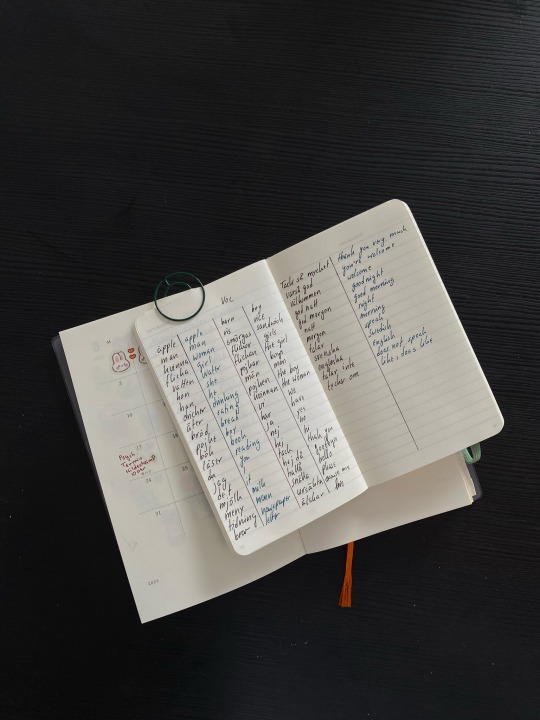 Voc
äpple
man
kvinna
flicka
vatten
hon
han
dricker
äter
bröd
pojke
bok
läser
du
jag
det
mjölk
meny
tidning
brev
apple
man
woman
girl
water
she
he
drinking
eating
bread
boy
book
reading
you
I
it
milk
menu
newspaper
letter
barn
ris
smörgås
flickan
pojkar
män
pojken
kvinnan
vi
har
ja
nej
hej
tack
hej då
hallå
snälla
ursäkta
älskar
boy
sandwich
the girl
boys
men
the boy
the woman
we
have
yes
no
hi
thank you
goodbye
hello
please
excuse me
Tack så mycket
varså god
välkommen
god natt
god morgon
natt
morgon
talar
svenska
engelska
talar inte
tycker om
thank you very much
you're welcome
welcome
good night
good morning
night
morning
speak
swedish
english
does not speak
like, does like
Psych
Termin